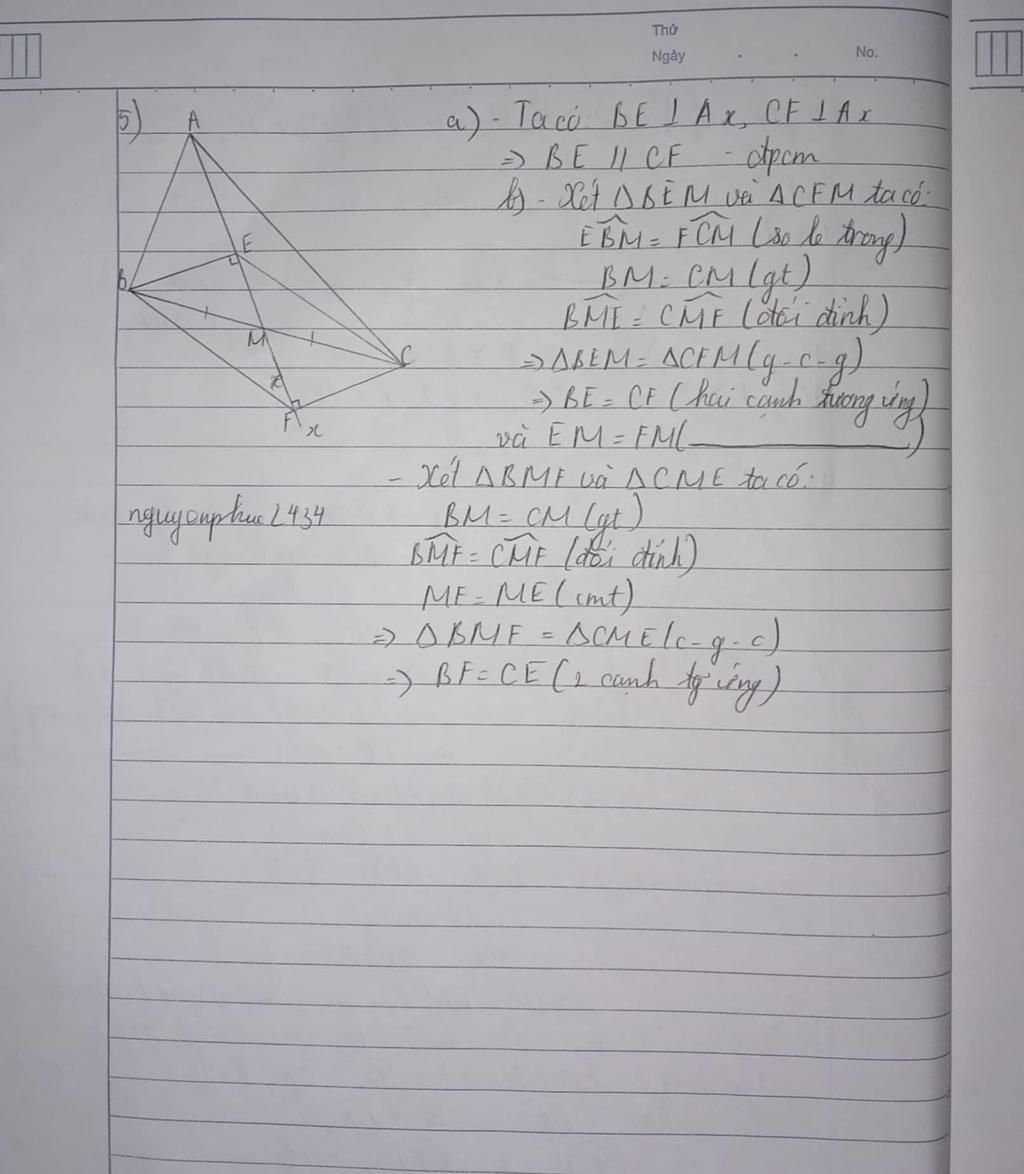 Thứ
Ngày . . No.
5)
A
B
E
M
C
x
F x
a) - Ta có BE ⊥ Ax, CF ⊥ Ax
=> BE // CF - đpcm
b) - Xét ΔBEM và ΔCFM ta có:
\widehat{EBM} = \widehat{FCM} (so le trong)
BM = CM (gt)
\widehat{BME} = \widehat{CMF} (đối đỉnh)
=> ΔBEM = ΔCFM (g-c-g)
=> BE = CF (hai cạnh tương ứng)
và EM = FM (________)
- Xét ΔBMF và ΔCME ta có:
nguyenphuc2434
BM = CM (gt)
\widehat{BMF} = \widehat{CMF} (đối đỉnh)
MF = ME (cmt)
=> ΔBMF = ΔCME (c-g-c)
=> BF = CE (2 cạnh tg ứng)